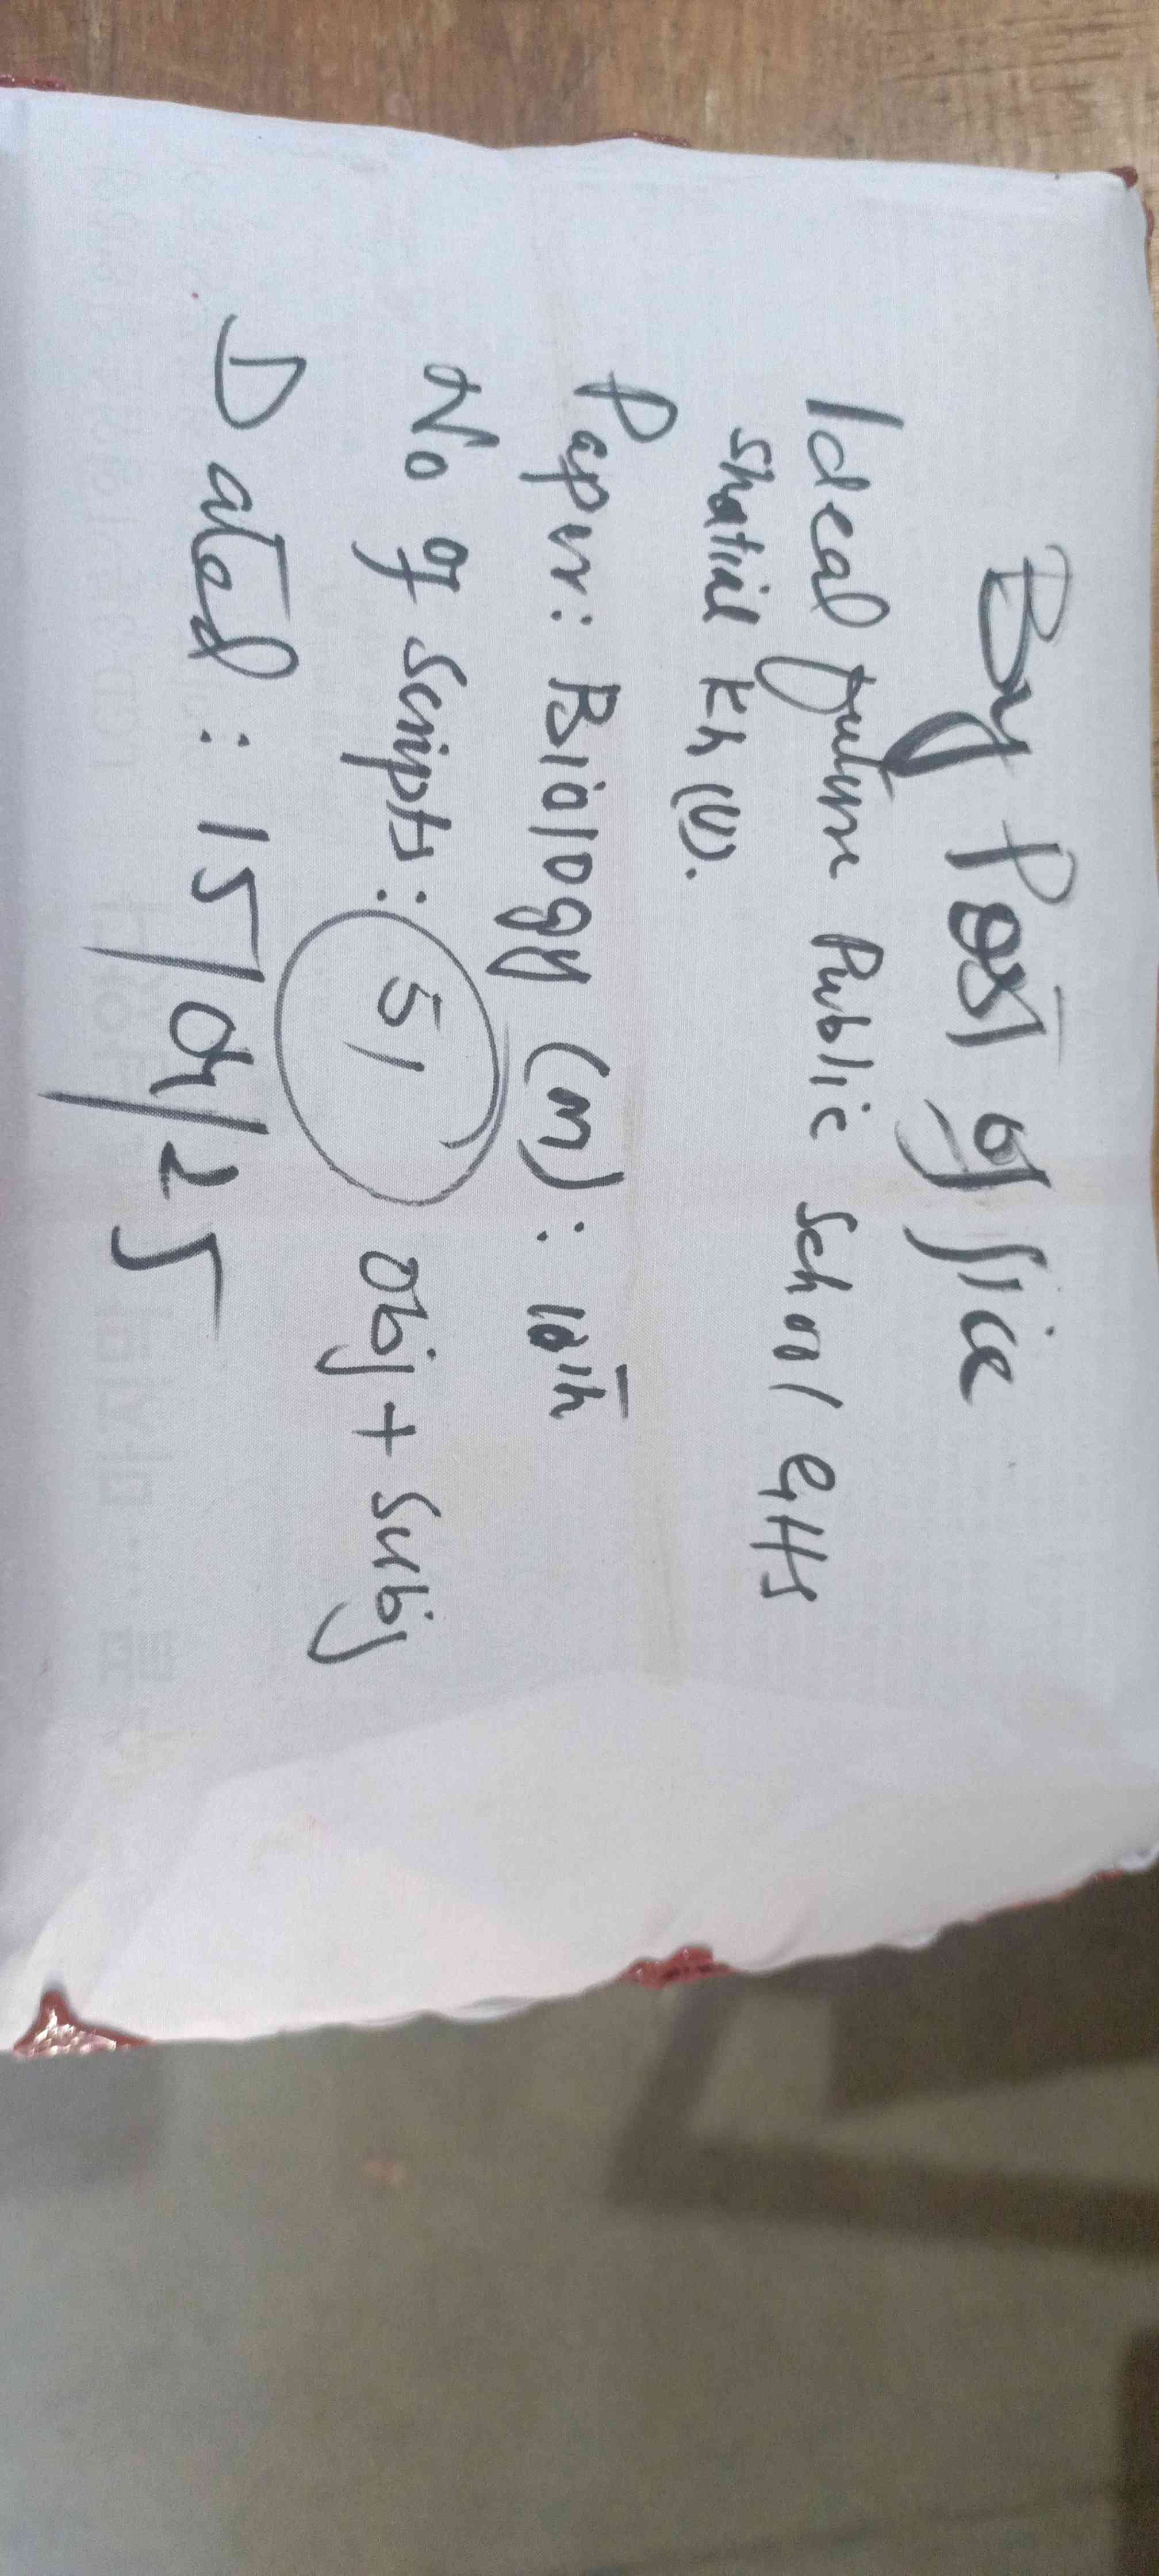 By Post office
Ideal future Public School / GHS
Shatial Kh (U).
Paper: Biology (M): 10th
No of Scripts: 51 obj + subj
Dated: 15/04/25